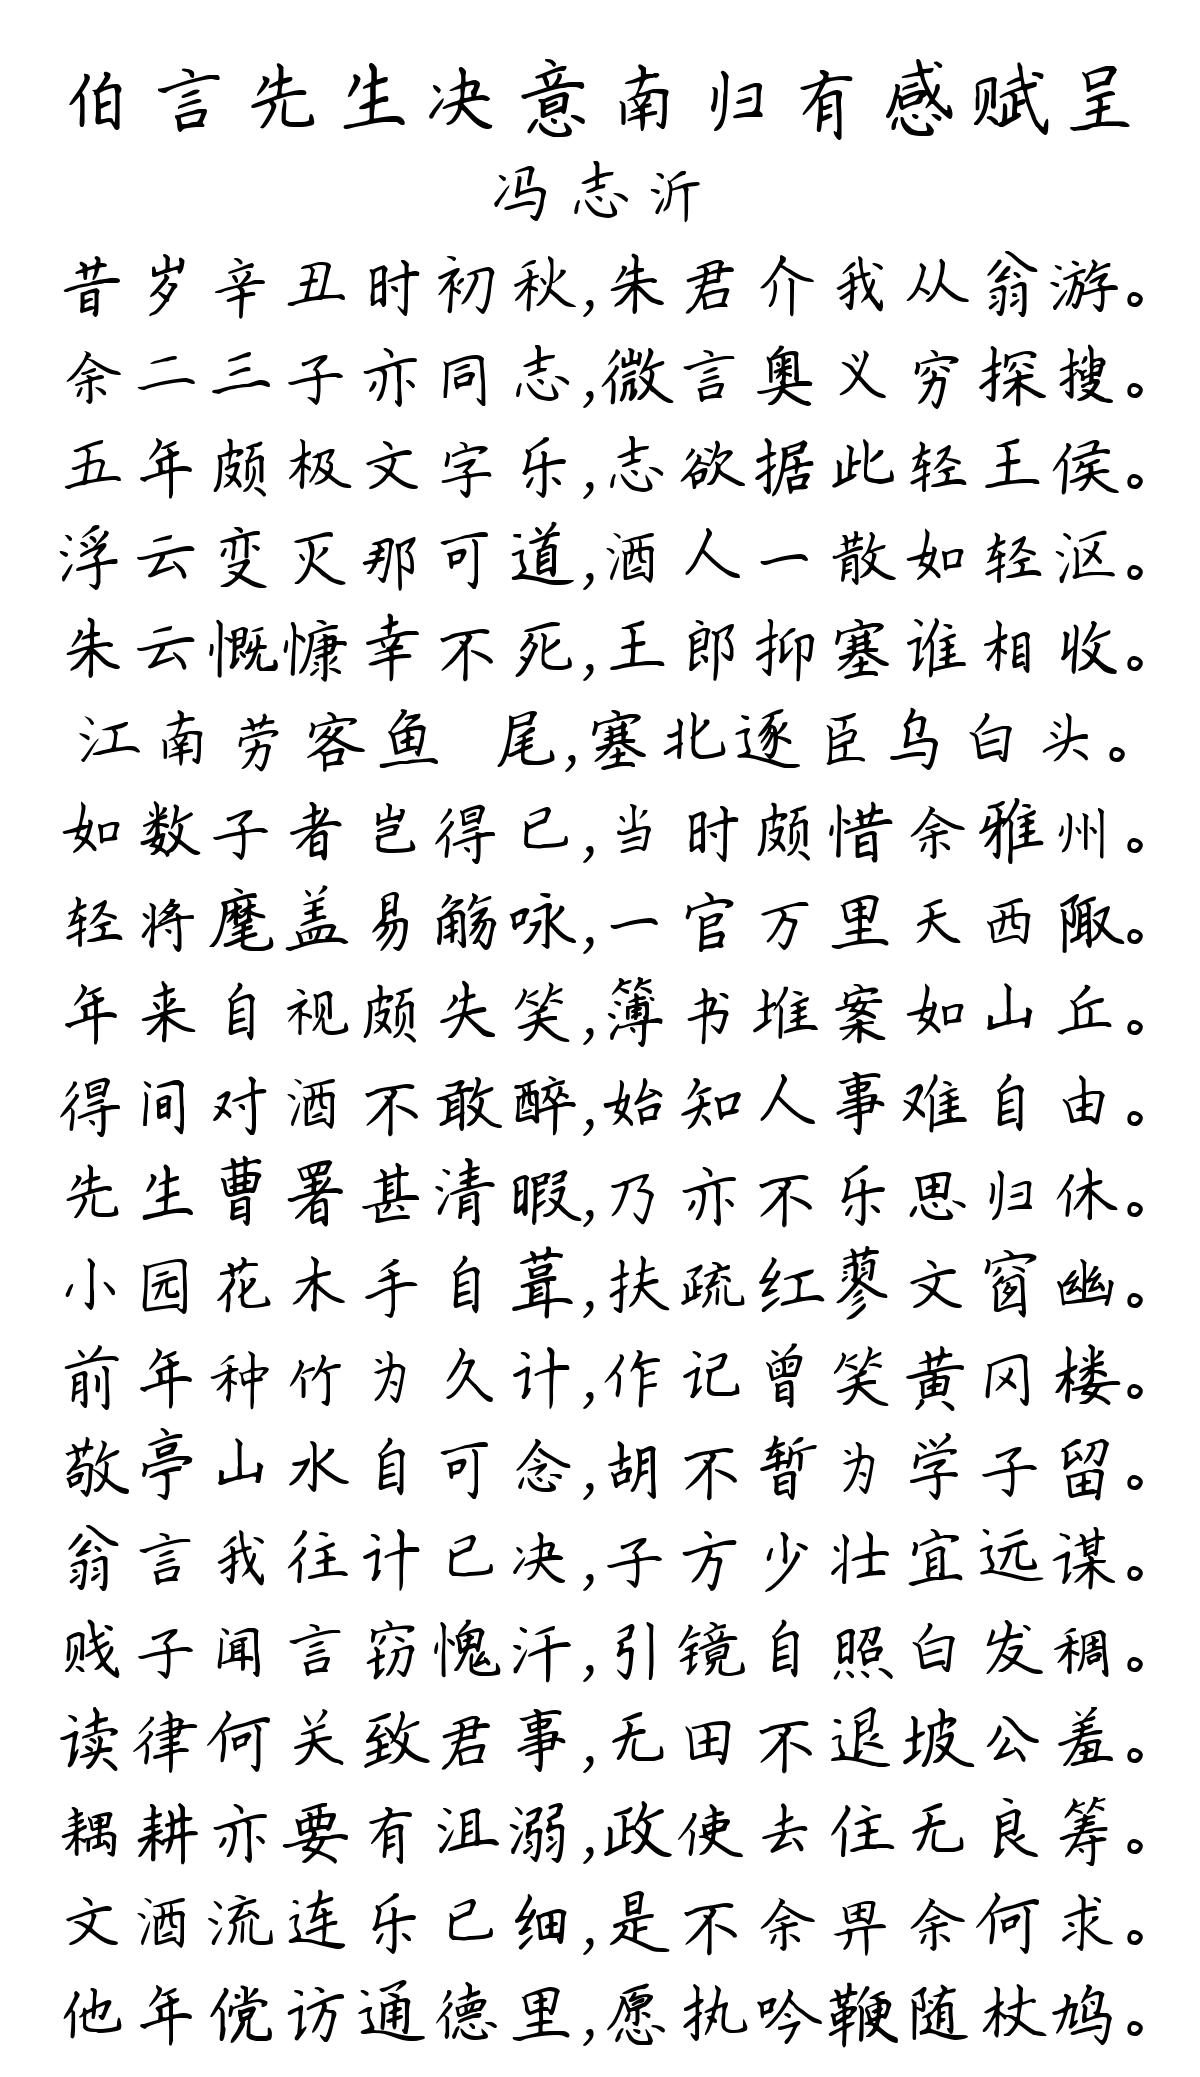 伯言先生决意南归有感赋呈
冯志沂
昔岁辛丑时初秋,朱君介我从翁游。
余二三子亦同志,微言奥义穷探搜。
五年颇极文字乐,志欲据此轻王侯。
浮云变灭那可道,酒人一散如轻沤。
朱云慨慷幸不死,王郎抑塞谁相收。
江南劳客鱼 尾,塞北逐臣乌白头。
如数子者岂得已,当时颇惜余雅州。
轻将麾盖易觞咏,一官万里天西陬。
年来自视颇失笑,簿书堆案如山丘。
得间对酒不敢醉,始知人事难自由。
先生曹署甚清暇,乃亦不乐思归休。
小园花木手自葺,扶疏红蓼文窗幽。
前年种竹为久计,作记曾笑黄冈楼。
敬亭山水自可念,胡不暂为学子留。
翁言我往计已决,子方少壮宜远谋。
贱子闻言窃愧汗,引镜自照白发稠。
读律何关致君事,无田不退坡公羞。
耦耕亦要有沮溺,政使去住无良筹。
文酒流连乐已细,是不余畀余何求。
他年傥访通德里,愿执吟鞭随杖鸠。